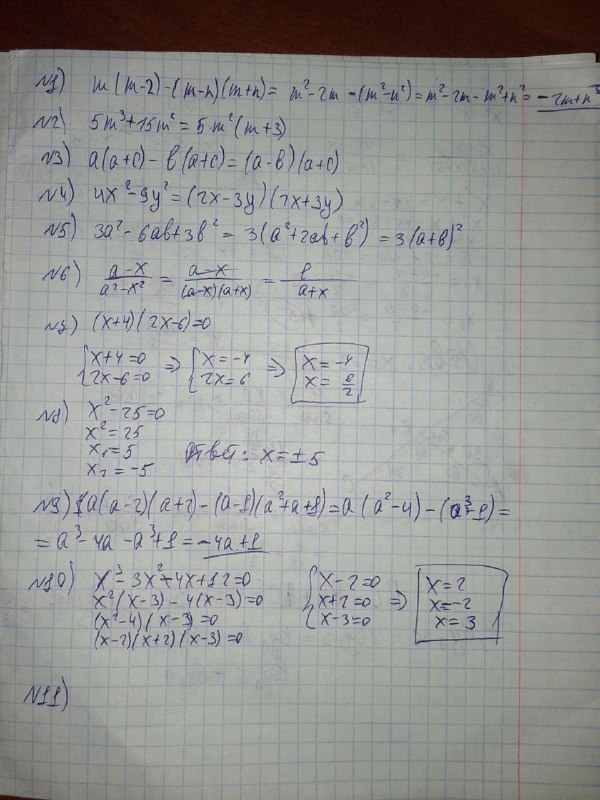 N1) m(m-2)-(m-n)(m+n)= m²-2m-(m²-n²)=m²-2m-m²+n²=-2m+n²
N2) 5m³+15m²=5m²(m+3)
N3) a(a+c)-в(a+c)=(a-в)(a+c)
N4) 4x²-9y²=(2x-3y)(2x+3y)
N5) 3a²-6aв+3в²=3(a²+2aв+в²)=3(a+в)²
N6) a-x / a²-x² = a-x / (a-x)(a+x) = 1 / a+x
N7) (x+4)(2x-6)=0
{x+4=0 => {x=-4 => x=-4
2x-6=0 2x=6 x= 6/2
N8) x²-25=0
x²=25
x₁=5 Ответ: x=±5
x₂=-5
N9) a(a-2)(a+2)-(a-1)(a²+a+1)=a(a²-4)-(a³-1)=
=a³-4a-a³+1=-4a+1
N10) x³-3x²-4x+12=0 {x-2=0 => x=2
x²(x-3)-4(x-3)=0 x+2=0 x=-2
(x²-4)(x-3)=0 x-3=0 x=3
(x-2)(x+2)(x-3)=0
N11)